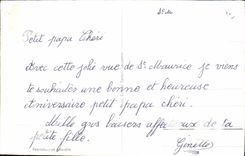 Petit papa chéri
Avec cette jolie vue de St Maurice je viens
te souhaiter une bonne et heureuse
anniversaire petit papa chéri.
Mille gros baisers affectueux de ta
petite fille.
Ginette